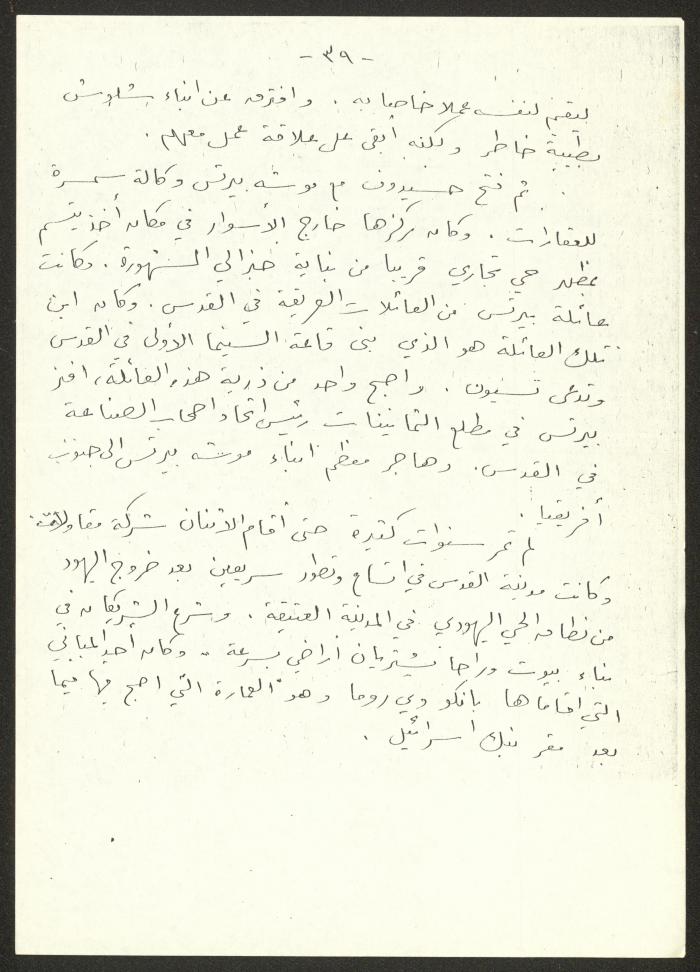 - ٣٩ -
ليقيم لنفسه عملا خاصا به . وافترق عن ابناء شلوش
بطيبة خاطر ولكنه أبقى على علاقة عمل معهم .
ثم فتح حسيدوف مع موشه بيرتس وكالة سمسرة
للعقارات . وكان مركزها خارج الأسوار في مكان أخذ يتسم
بمظهر حي تجاري قريبا من بناية جنرالي المشهورة . وكانت
عائلة بيرتس من العائلات العريقة في القدس . وكان ابن
تلك العائلة هو الذي بنى قاعة السينما الأولى في القدس
وتدعى تسيون . واصبح واحد من ذرية هذه العائلة،
بيرتس في مطلع الثمانينات رئيس اتحاد اصحاب الصناعة
في القدس . وهاجر معظم ابناء موشه بيرتس الى جنوب
أفريقيا .
لم تمر سنوات كثيرة حتى أقام الاثنان شركة مقاولات
وكانت مدينة القدس في اتساع وتطور سريعين بعد خروج اليهود
من نطاق الحي اليهودي في المدينة العتيقة . وشرع الشريكان في
بناء بيوت وراحا يشتريان أراضي بسرعة . وكان أحد المباني
التي اقاماها بانكو دي روما وهو العمارة التي اصبح فيها فيما
بعد مقر بنك اسرائيل .